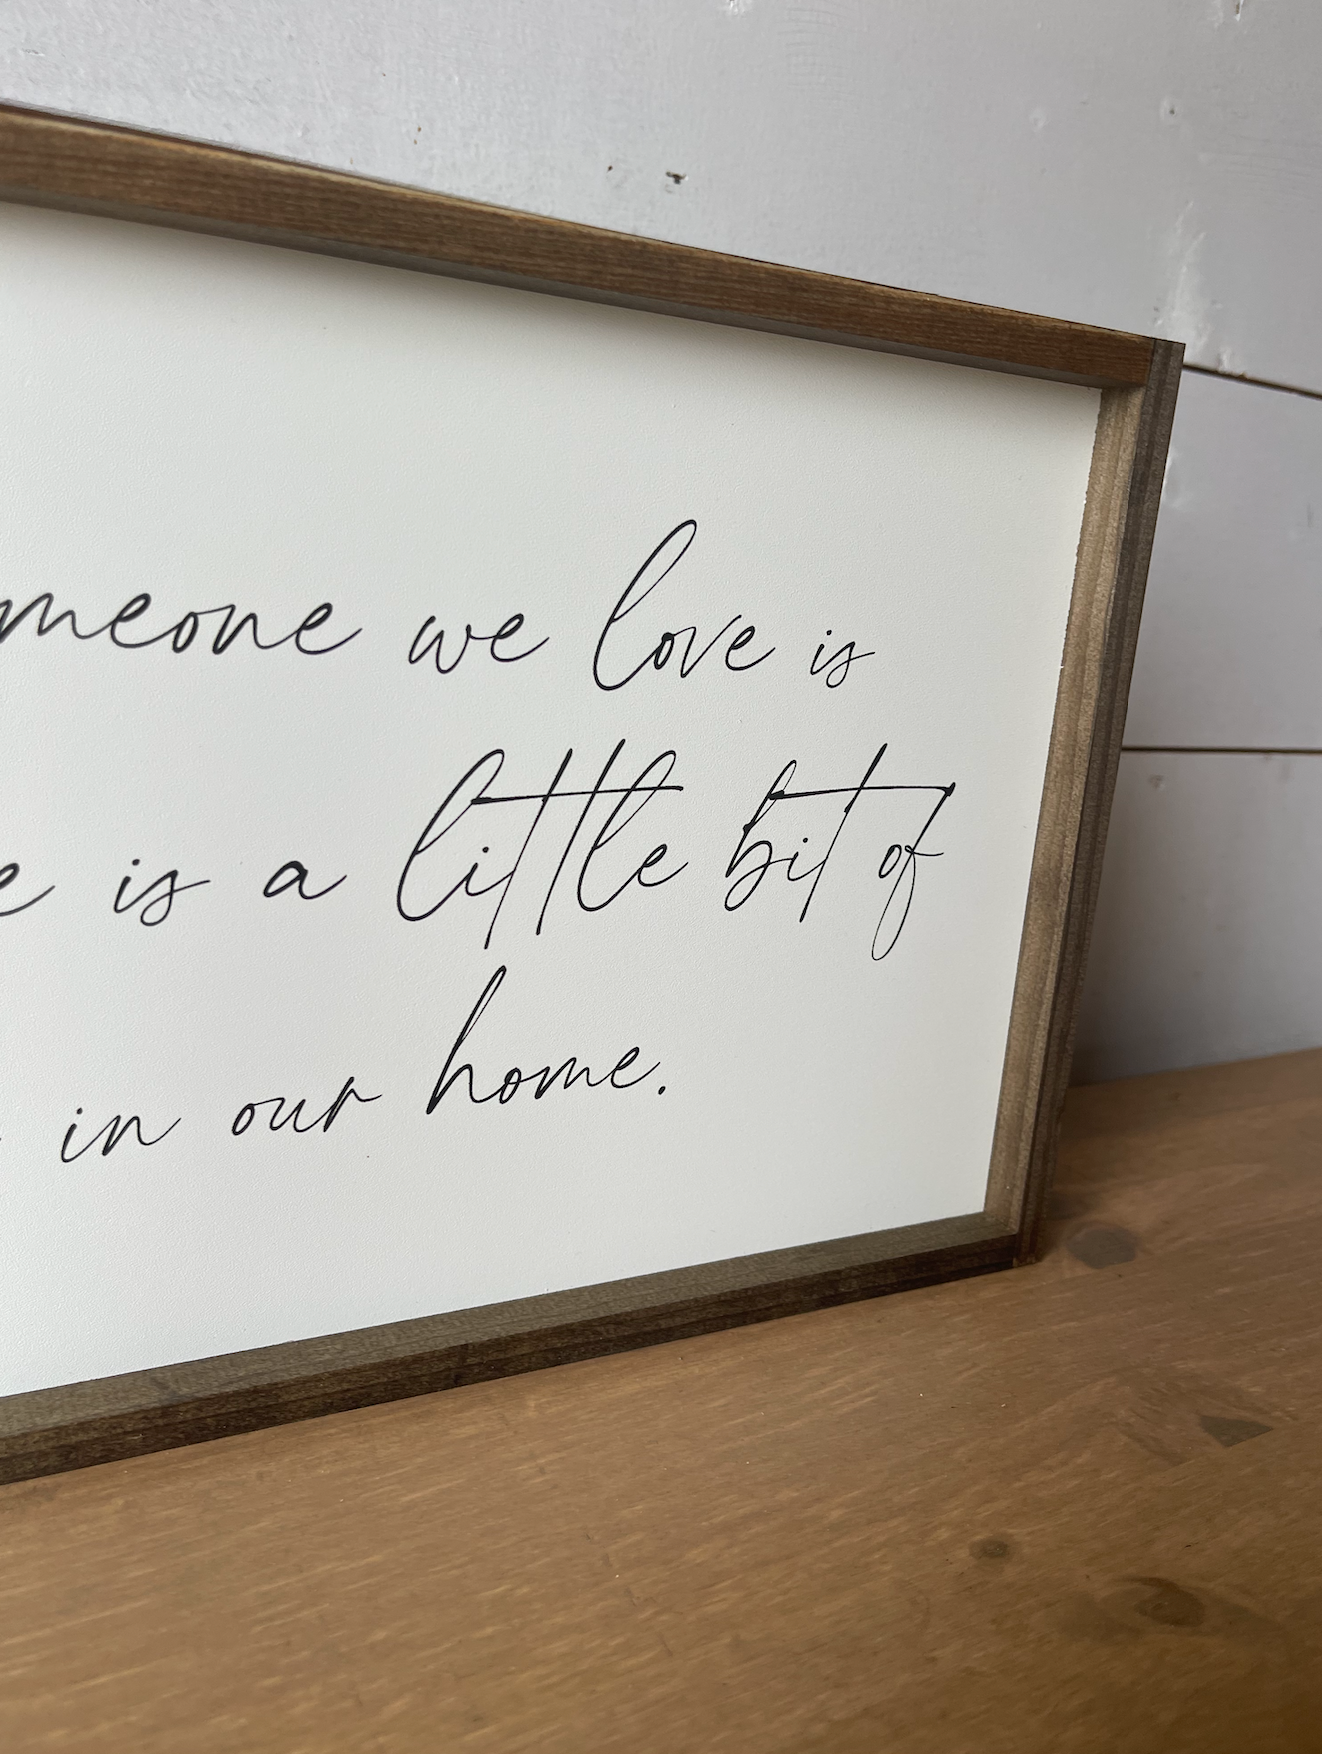 meone we love is
e is a little bit of
in our home.